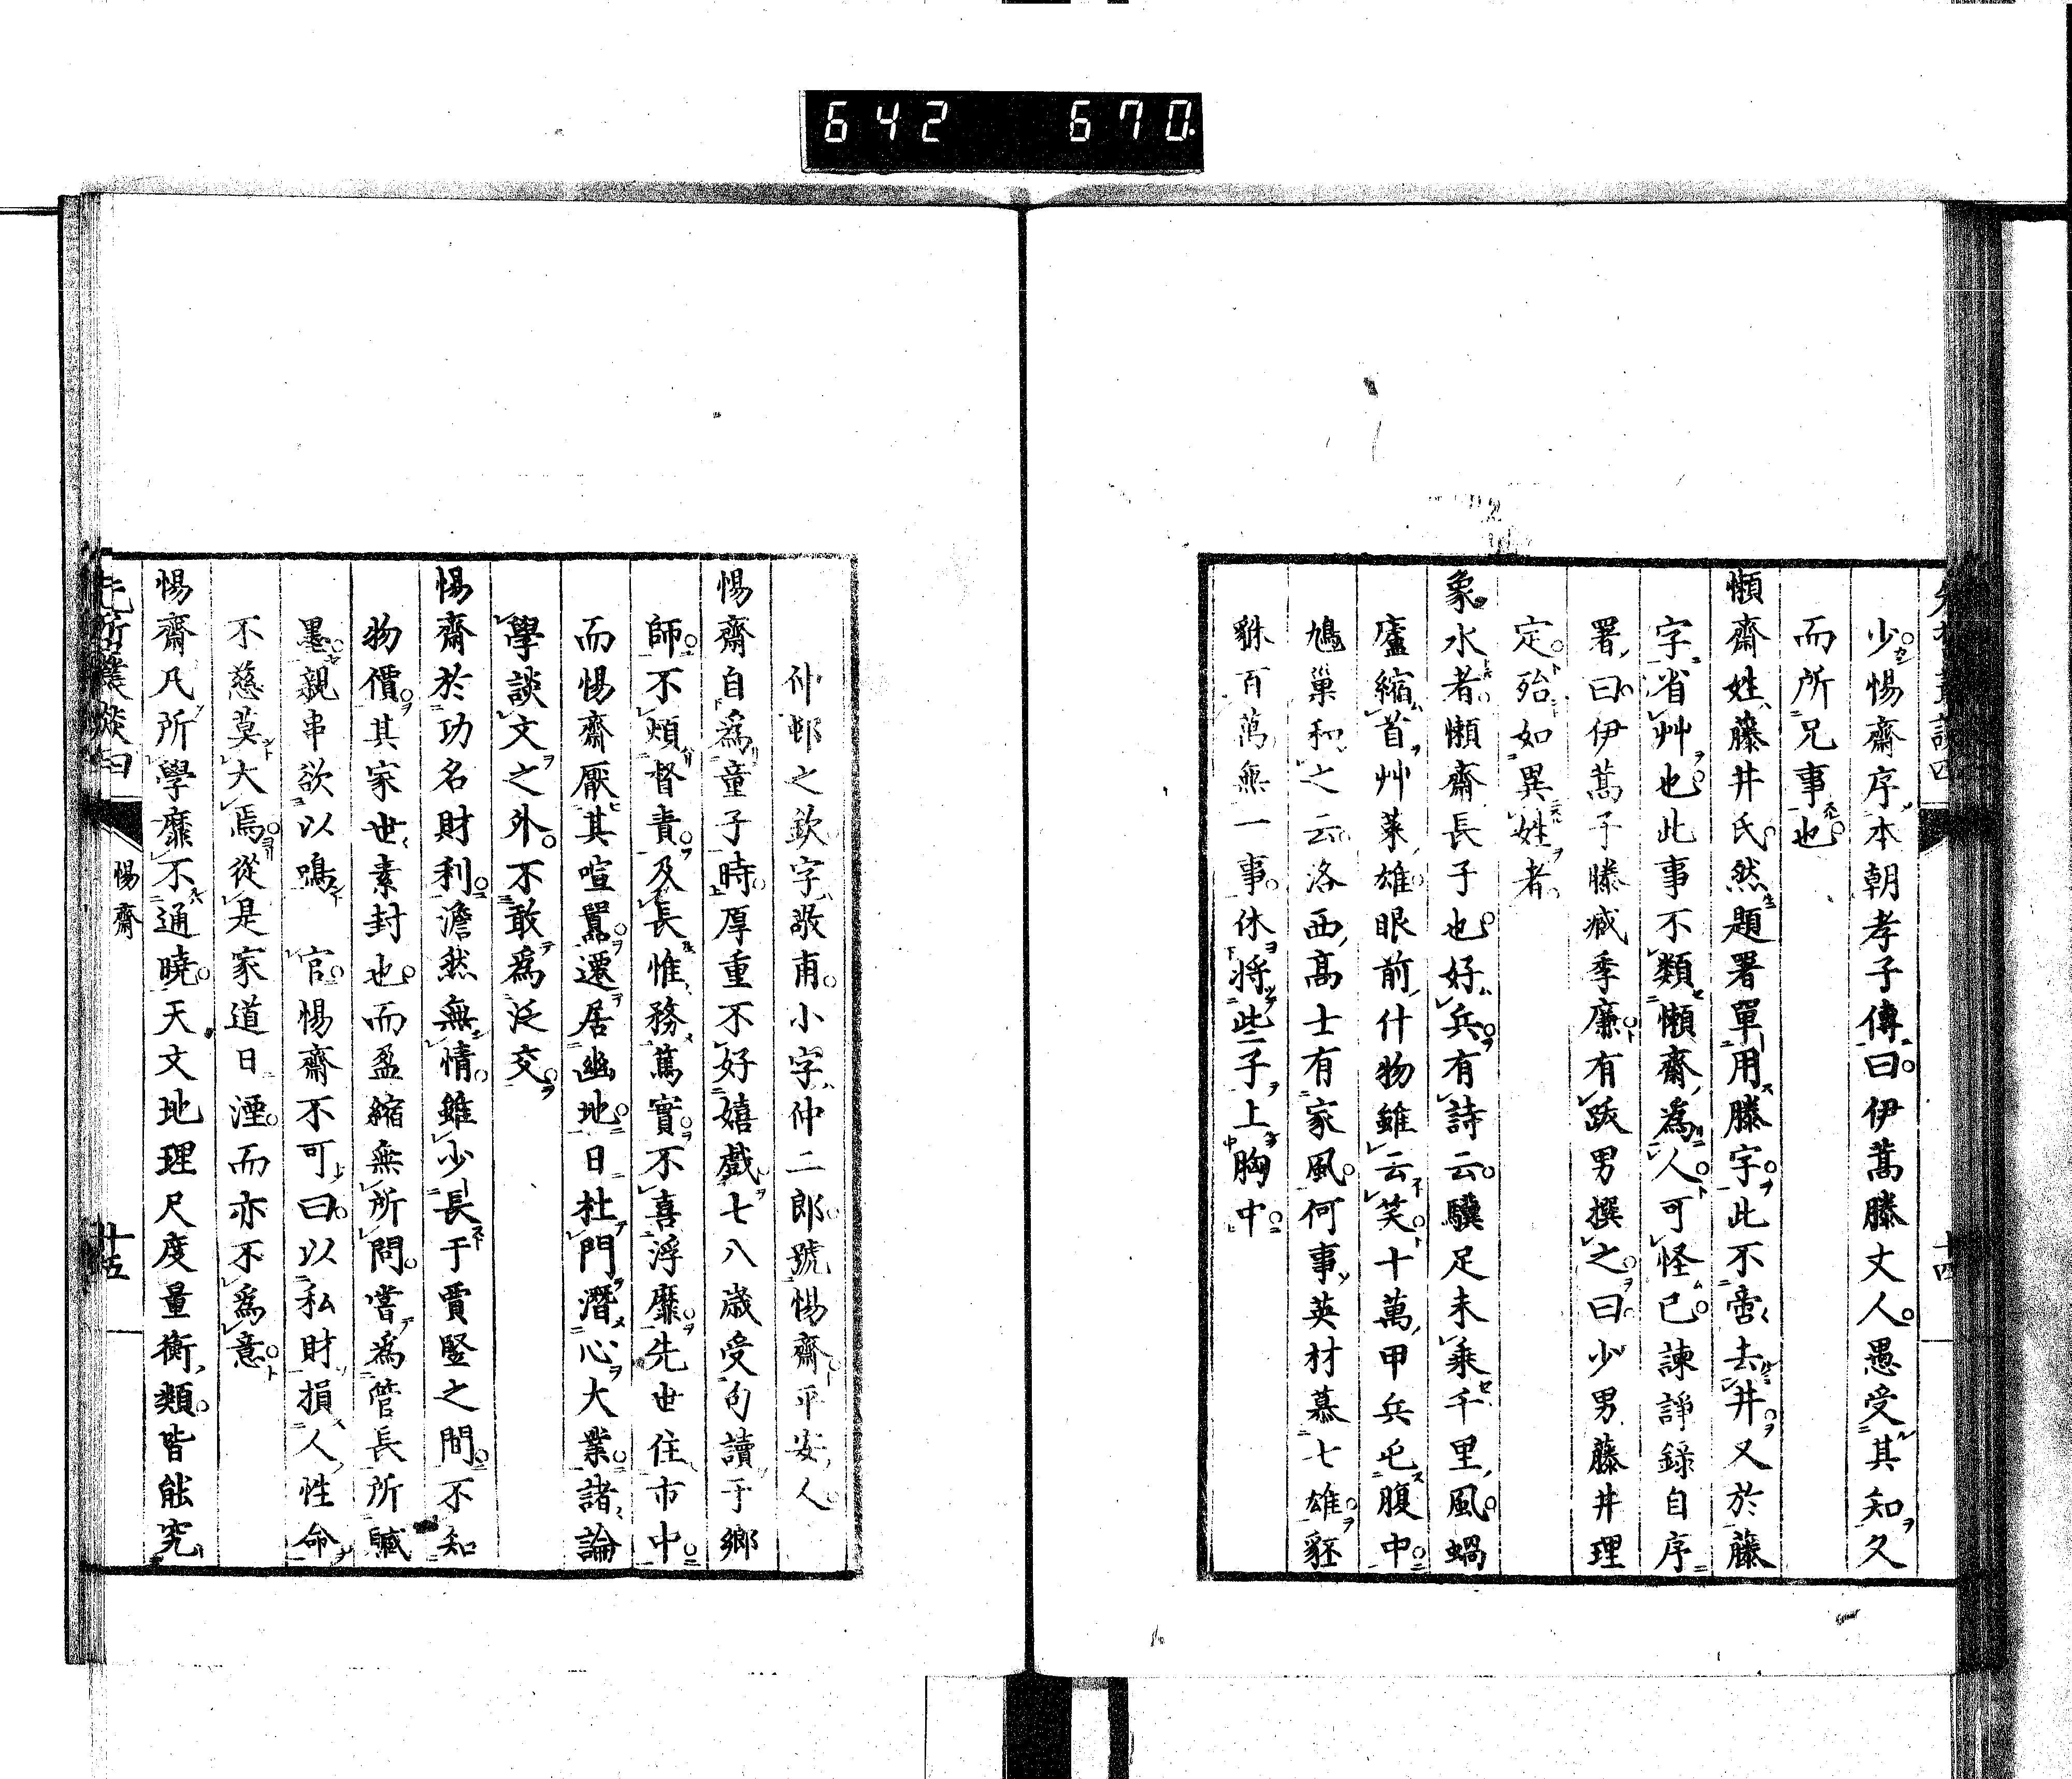 642 670
少惕齋序本朝孝子傳曰伊蒿滕丈人愚受其知久
而所兄事也
懶齋姓藤井氏然題署單用滕字此不啻去井又於藤
字省艸也此事不類懶齋為人可怪已諫諍錄自序
署曰伊蒿子滕臧季廉有跋男撰之曰少男藤井理
定殆如異姓者
象水者懶齋長子也好兵有詩云驥足未乘千里風蝸
廬縮首艸萊雄眼前什物雖云笑十萬甲兵屯腹中
鳩巢和之云洛西高士有家風何事英材慕七雄豼
貅百萬無一事休將些子上胸中
十四
仲邨之欽字敬甫小字仲二郎號惕齋平安人
惕齋自為童子時厚重不好嬉戲七八歲受句讀于鄉
師不煩督責及長惟務篤實不喜浮靡先世住市中
而惕齋厭其喧囂遷居幽地日杜門潛心大業諸論
學談文之外不敢為泛交
惕齋於功名財利澹然無情雖少長于賈豎之間不知
物價其家世素封也而盈縮無所問嘗為管長所贓
墨親串欲以鳴 官惕齋不可曰以私財損人性命
不慈莫大焉從是家道日湮而亦不為意
惕齋凡所學靡不通曉天文地理尺度量衡類皆能究
惕齋
十五